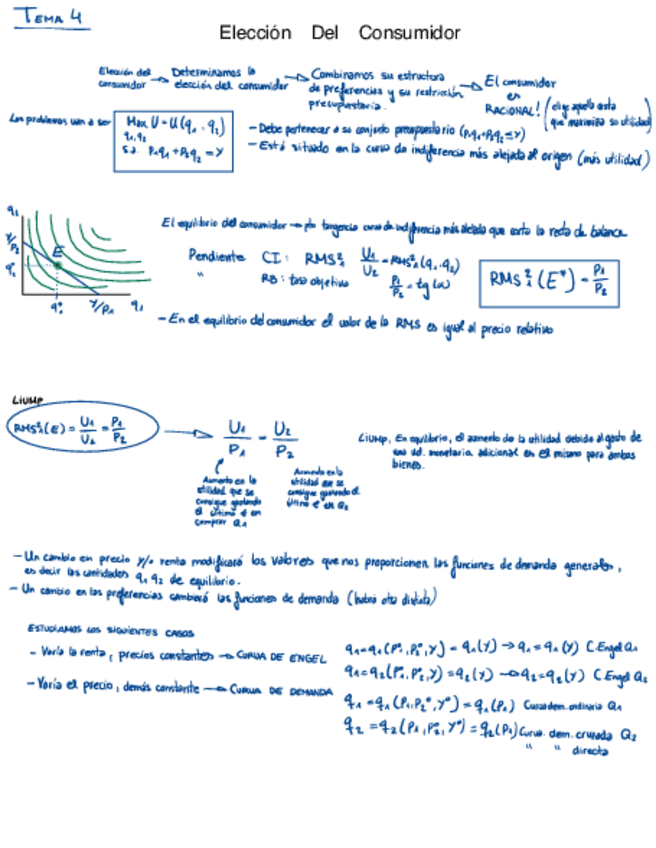 TEMA 4
Elección Del Consumidor
Elección del consumidor → Determinamos la elección del consumidor → Combinamos su estructura de preferencias y su restricción presupuestaria. → El consumidor es RACIONAL! (elige aquella cesta que maximiza su utilidad)
Los problemas van a ser
Max U = U(q1, q2)
q1,q2
s.a. P1q1 + P2q2 = Y
- Debe pertenecer a su conjunto presupuestario (P1q1+P2q2=Y)
- Está situado en la curva de indiferencia más alejada al origen (más utilidad)
q2
Y/P2
q2°
E
q1°
Y/P1
q1
El equilibrio del consumidor → pto tangencia curva de indiferencia más alejada que corta la recta de balance
Pendiente CI: RMS²₁ U1/U2 = RMS²₁(q1, q2)
" RB: tasa objetivo P1/P2 = tg(α)
RMS²₁(E*) = P1/P2
- En el equilibrio del consumidor el valor de la RMS es igual al precio relativo
LIUMP
RMS²₁(E) = U1/U2 = P1/P2
→ U1/P1 = U2/P2
Aumento en la utilidad que se consigue gastando el último € en comprar Q1
Aumento en la utilidad que se consigue gastando el último € en Q2
LIUMP. En equilibrio, el aumento de la utilidad debido al gasto de una ud. monetaria adicional es el mismo para ambos bienes.
- Un cambio en precio y/o renta modificará los valores que nos proporcionen las funciones de demanda generales,
es decir las cantidades q1 q2 de equilibrio.
- Un cambio en las preferencias cambiará las funciones de demanda (habrá otra distinta)
ESTUDIAMOS LOS SIGUIENTES CASOS
- Varía la renta, precios constantes → CURVA DE ENGEL
q1 = q1(P1°, P2°, Y) = q1(Y) → q1 = q1(Y) C.Engel Q1
q2 = q2(P1°, P2°, Y) = q2(Y) → q2 = q2(Y) C.Engel Q2
- Varía el precio, demás constante → CURVA DE DEMANDA
q1 = q1(P1, P2°, Y°) = q1(P1) Curva dem. ordinaria Q1
q2 = q2(P1, P2°, Y°) = q2(P1) Curva dem. cruzada Q2
" " directa